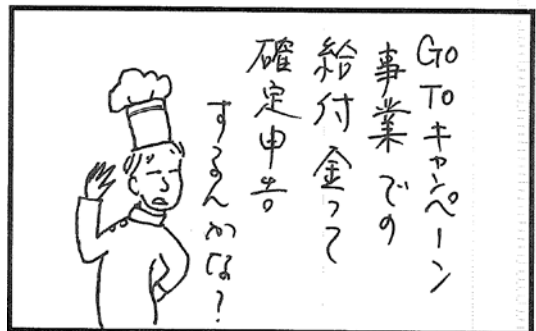 GO TOキャンペーン
事業での
給付金って
確定申告
するんかな?